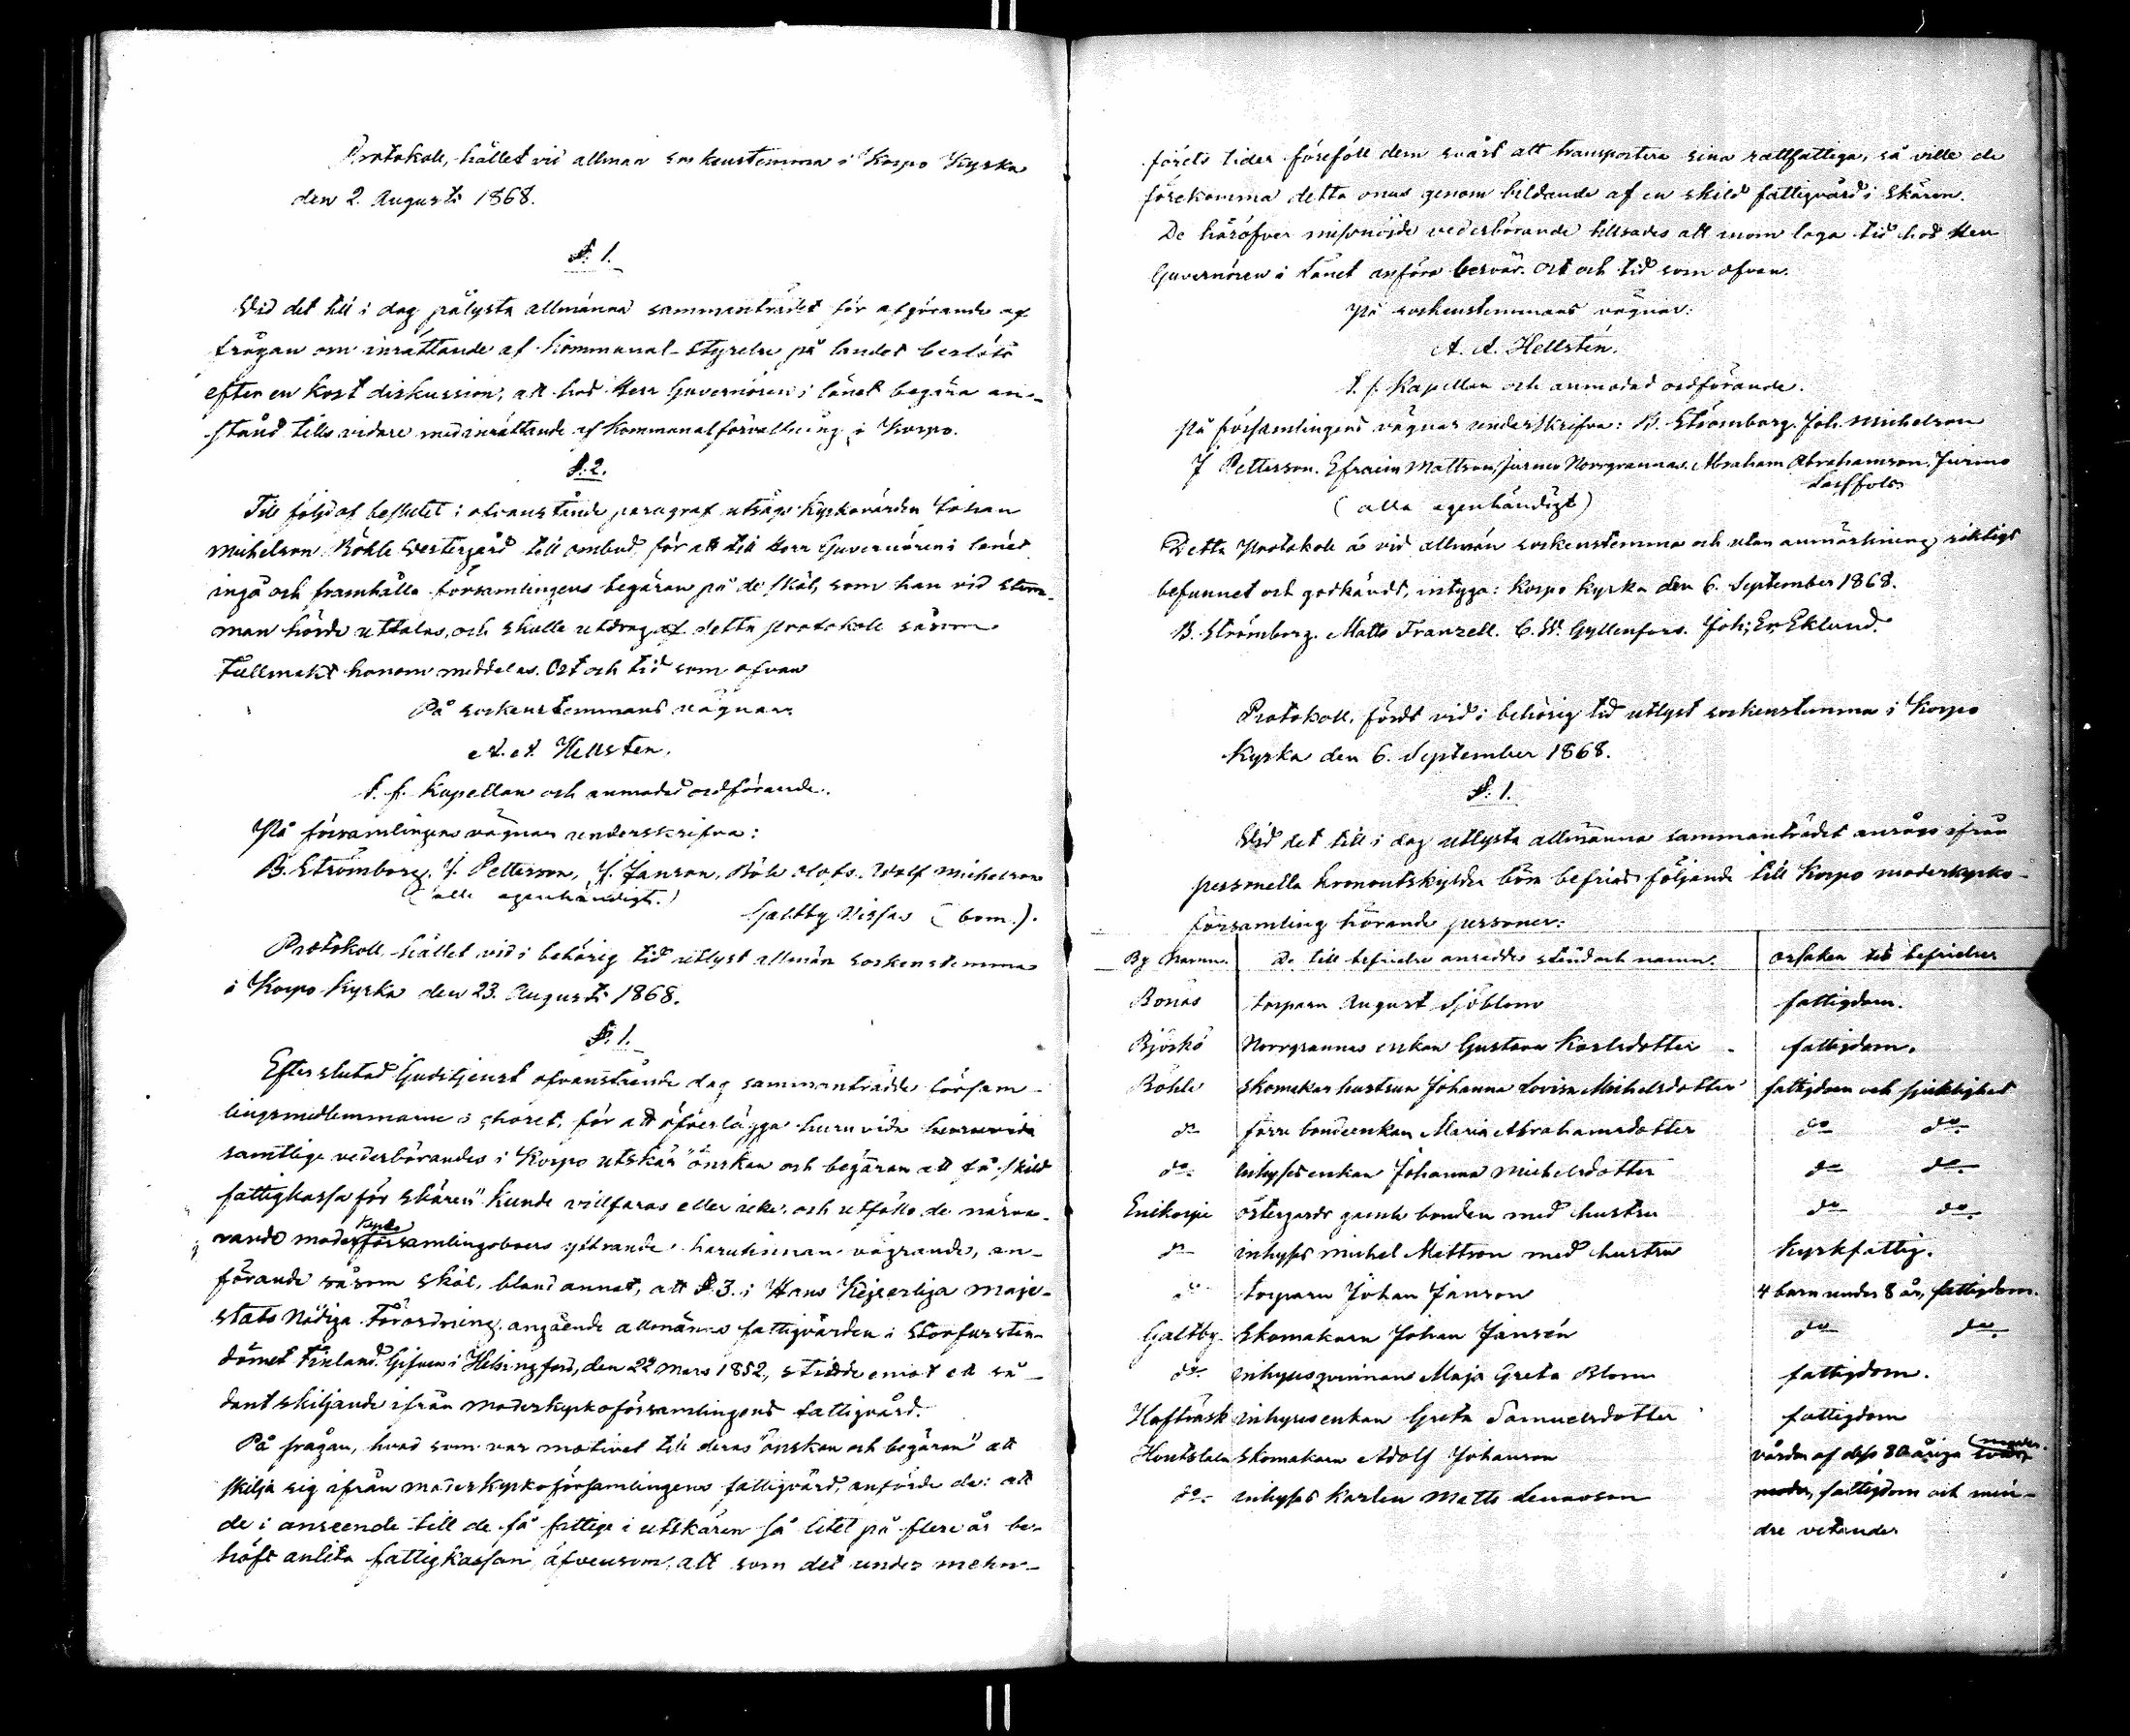 Protokoll, hållet vid allmän sockenstemma i Korpo Kyrka
den 2. Augusti 1868.
§. 1.
Vid det till i dag pålysta allmänna sammanträdet för afgörande af
frågan om inrättande af Kommunal-Styrelse på landet beslöts
efter en kort diskussion, att hos Herr Guvernören i länet begära an-
stånd tills vidare med inrättande af Kommunalförvaltning i Korpo.
§. 2.
Till följd af beslutet i ofvanstående paragraf utsågs Kyrkovärden Johan
Michelson Röhls Vestergård till ombud, för att till Herr Guvernören i länet
ingå och framhålla församlingens begäran på de skäl, som han vid stem-
man hörde uttalas, och skulle utdrag af detta protokoll såsom
fullmakt honom meddelas. Ort och tid som ofvan
På sockenstemmans vägnar.
A. A. Hellsten.
t. f. Kapellan och anmodad ordförande.
På församlingens vägnar underskrifva:
B. Strömborg. J. Petterson, J. Janson, Röhls Adolf Michelson
(alla egenhändigt.)
Galtby Nissas (bom.).
Protokoll, hållet vid i behörig tid utlyst allmän sockenstemma
i Korpo Kyrka den 23. Augusti 1868.
§. 1.
Efter slutad Gudstjenst ofvanstående dag sammanträdde försam-
lingsmedlemmarne i choret, för att öfverlägga huruvida huruvida
samtlige vederbörandes i Korpo utskär "önskan och begäran att få skild
fattigkassa för skären" kunde villfaras eller icke, och utföllo de närva-
kyrko
rande moderförsamlingsboers yttrande härutinnan vägrande, an-
förande såsom skäl, bland annat, att § 3. i Hans Kejserliga Maje-
stäts Nådiga Förordning angående allmänna fattigvården i Storfursten-
dömet Finland. Gifven i Helsingfors, den 22 Mars 1852, stridde emot ett så-
dant skiljande ifrån moderkyrkoförsamlingens fattigvård.
På frågan, hvad som var motivet till deras "önskan och begäran" att
skilja sig ifrån moderkyrkoförsamlingens fattigvård, anförde de: att
de i anseende till de få fattige i utskären så litet på flere år be-
höft anlita fattigkassan, äfvensom, att som det under mehn-
förets tider föreföll dem svårt att transportera sina rattfattiga, så ville de
förekomma detta onus genom bildande af en skild fattigvård i Skären.
De häröfver missnöjde vederbörande tillsades att inom laga tid hos Herr
Guvernören i länet anföra besvär. Ort och tid som ofvan.
På sockenstemmans vägnar:
A. A. Hellstén.
t. f. Kapellan och anmodad ordförande.
På församlingens vägnar underskrifva: B. Strömborg. Joh. Michelson
J Petterson. Efraim Mattson, Jurmo Norrgrannas. Abraham Abrahamson. Jurmo
(alla egenhändigt)
Detta Protokoll är vid allmän sockenstemma och utan anmärkning riktigt
befunnet och godkändt, intyga: Korpo Kyrka den 6. September 1868.
B. Strömborg. Matts Franzell. C. W. Gyllenfors. Joh; Er. Eklund.
Protokoll, fördt vid i behörig tid utlyst sockenstemma i Korpo
Kyrka den 6. September 1868.
§. 1.
Vid det till i dag utlysta allmänna sammanträdet ansågs ifrån
personella kronoutskylder böra befrias följande till Korpo moderkyrko-
församling hörande personer:
By Namn. De till befrielse ansedde stånd och namn. orsaken till befrielser
Bonäs torparn August Sjöblom fattigdom.
Björkö Norrgrannas enkan Gustava Karlsdotter fattigdom.
Röhls skomakar hustrun Johanna Lovisa Michelsdotter fattigdom och sjuklighet
do förre bondeenkan Maria Abrahamsdotter do do
do inhyses enkan Johanna Michelsdotter do do
Enikorpi östergårds gamle bonden med hustru do do
do inhyses Michel Mattson med hustru Kyrkfattig.
do torparn Johan Janson 4 barn under 8 år, fattigdom.
Galtby. Skomakarn Johan Jansén do do
do inhysesqvinnan Maja Greta Blom fattigdom.
Hafträsk inhyses enkan Greta Samuelsdotter fattigdom
Houtskala skomakarn Adolf Johanson vården af dess 80 åriga
do inhyses karlen Matts Lenason moder, fattigdom och min-
dre vetande